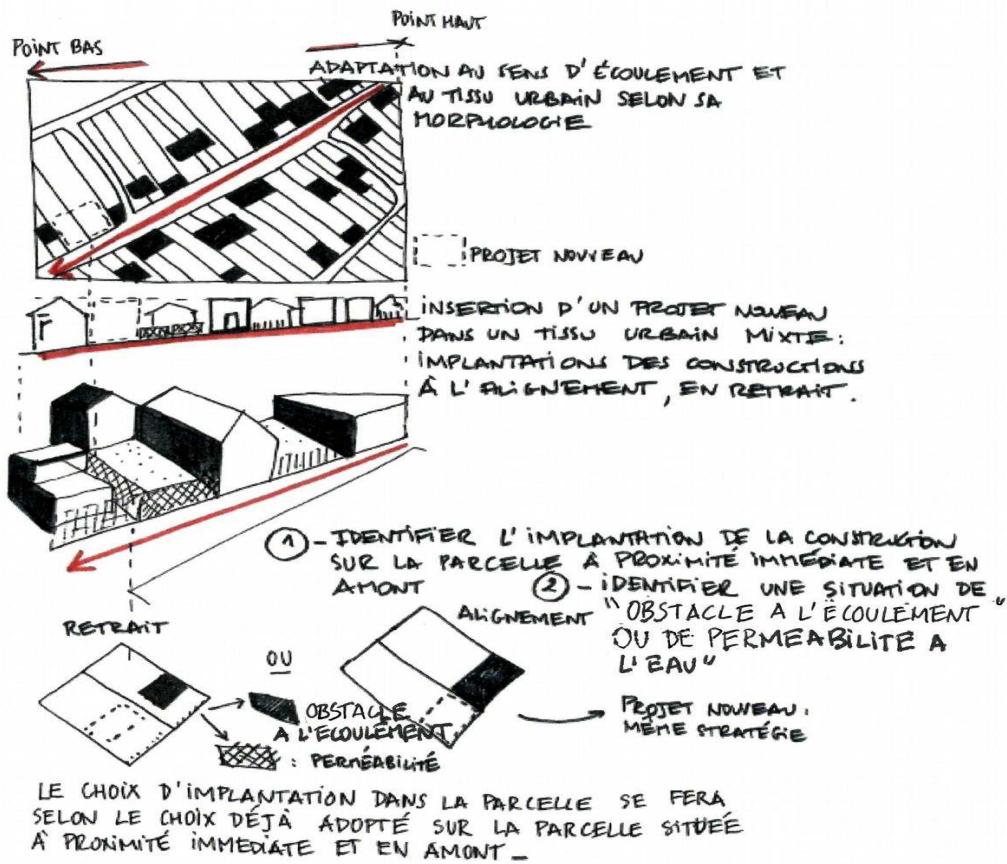 POINT HAUT
POINT BAS
ADAPTATION AU SENS D'ÉCOULEMENT ET
AU TISSU URBAIN SELON SA
MORPHOLOGIE
PROJET NOUVEAU
INSERTION D'UN PROJET NOUVEAU
DANS UN TISSU URBAIN MIXTE :
IMPLANTATIONS DES CONSTRUCTIONS
À L'ALIGNEMENT, EN RETRAIT.
1 - IDENTIFIER L'IMPLANTATION DE LA CONSTRUCTION
SUR LA PARCELLE À PROXIMITÉ IMMÉDIATE ET EN
AMONT
2 - IDENTIFIER UNE SITUATION DE
"OBSTACLE A L'ÉCOULEMENT
OU DE PERMEABILITE A
L'EAU"
RETRAIT
OU
ALIGNEMENT
OBSTACLE
A L'ECOULEMENT
: PERMÉABILITÉ
PROJET NOUVEAU :
MÊME STRATÉGIE
LE CHOIX D'IMPLANTATION DANS LA PARCELLE SE FERA
SELON LE CHOIX DÉJÀ ADOPTÉ SUR LA PARCELLE SITUÉE
À PROXIMITÉ IMMEDIATE ET EN AMONT _